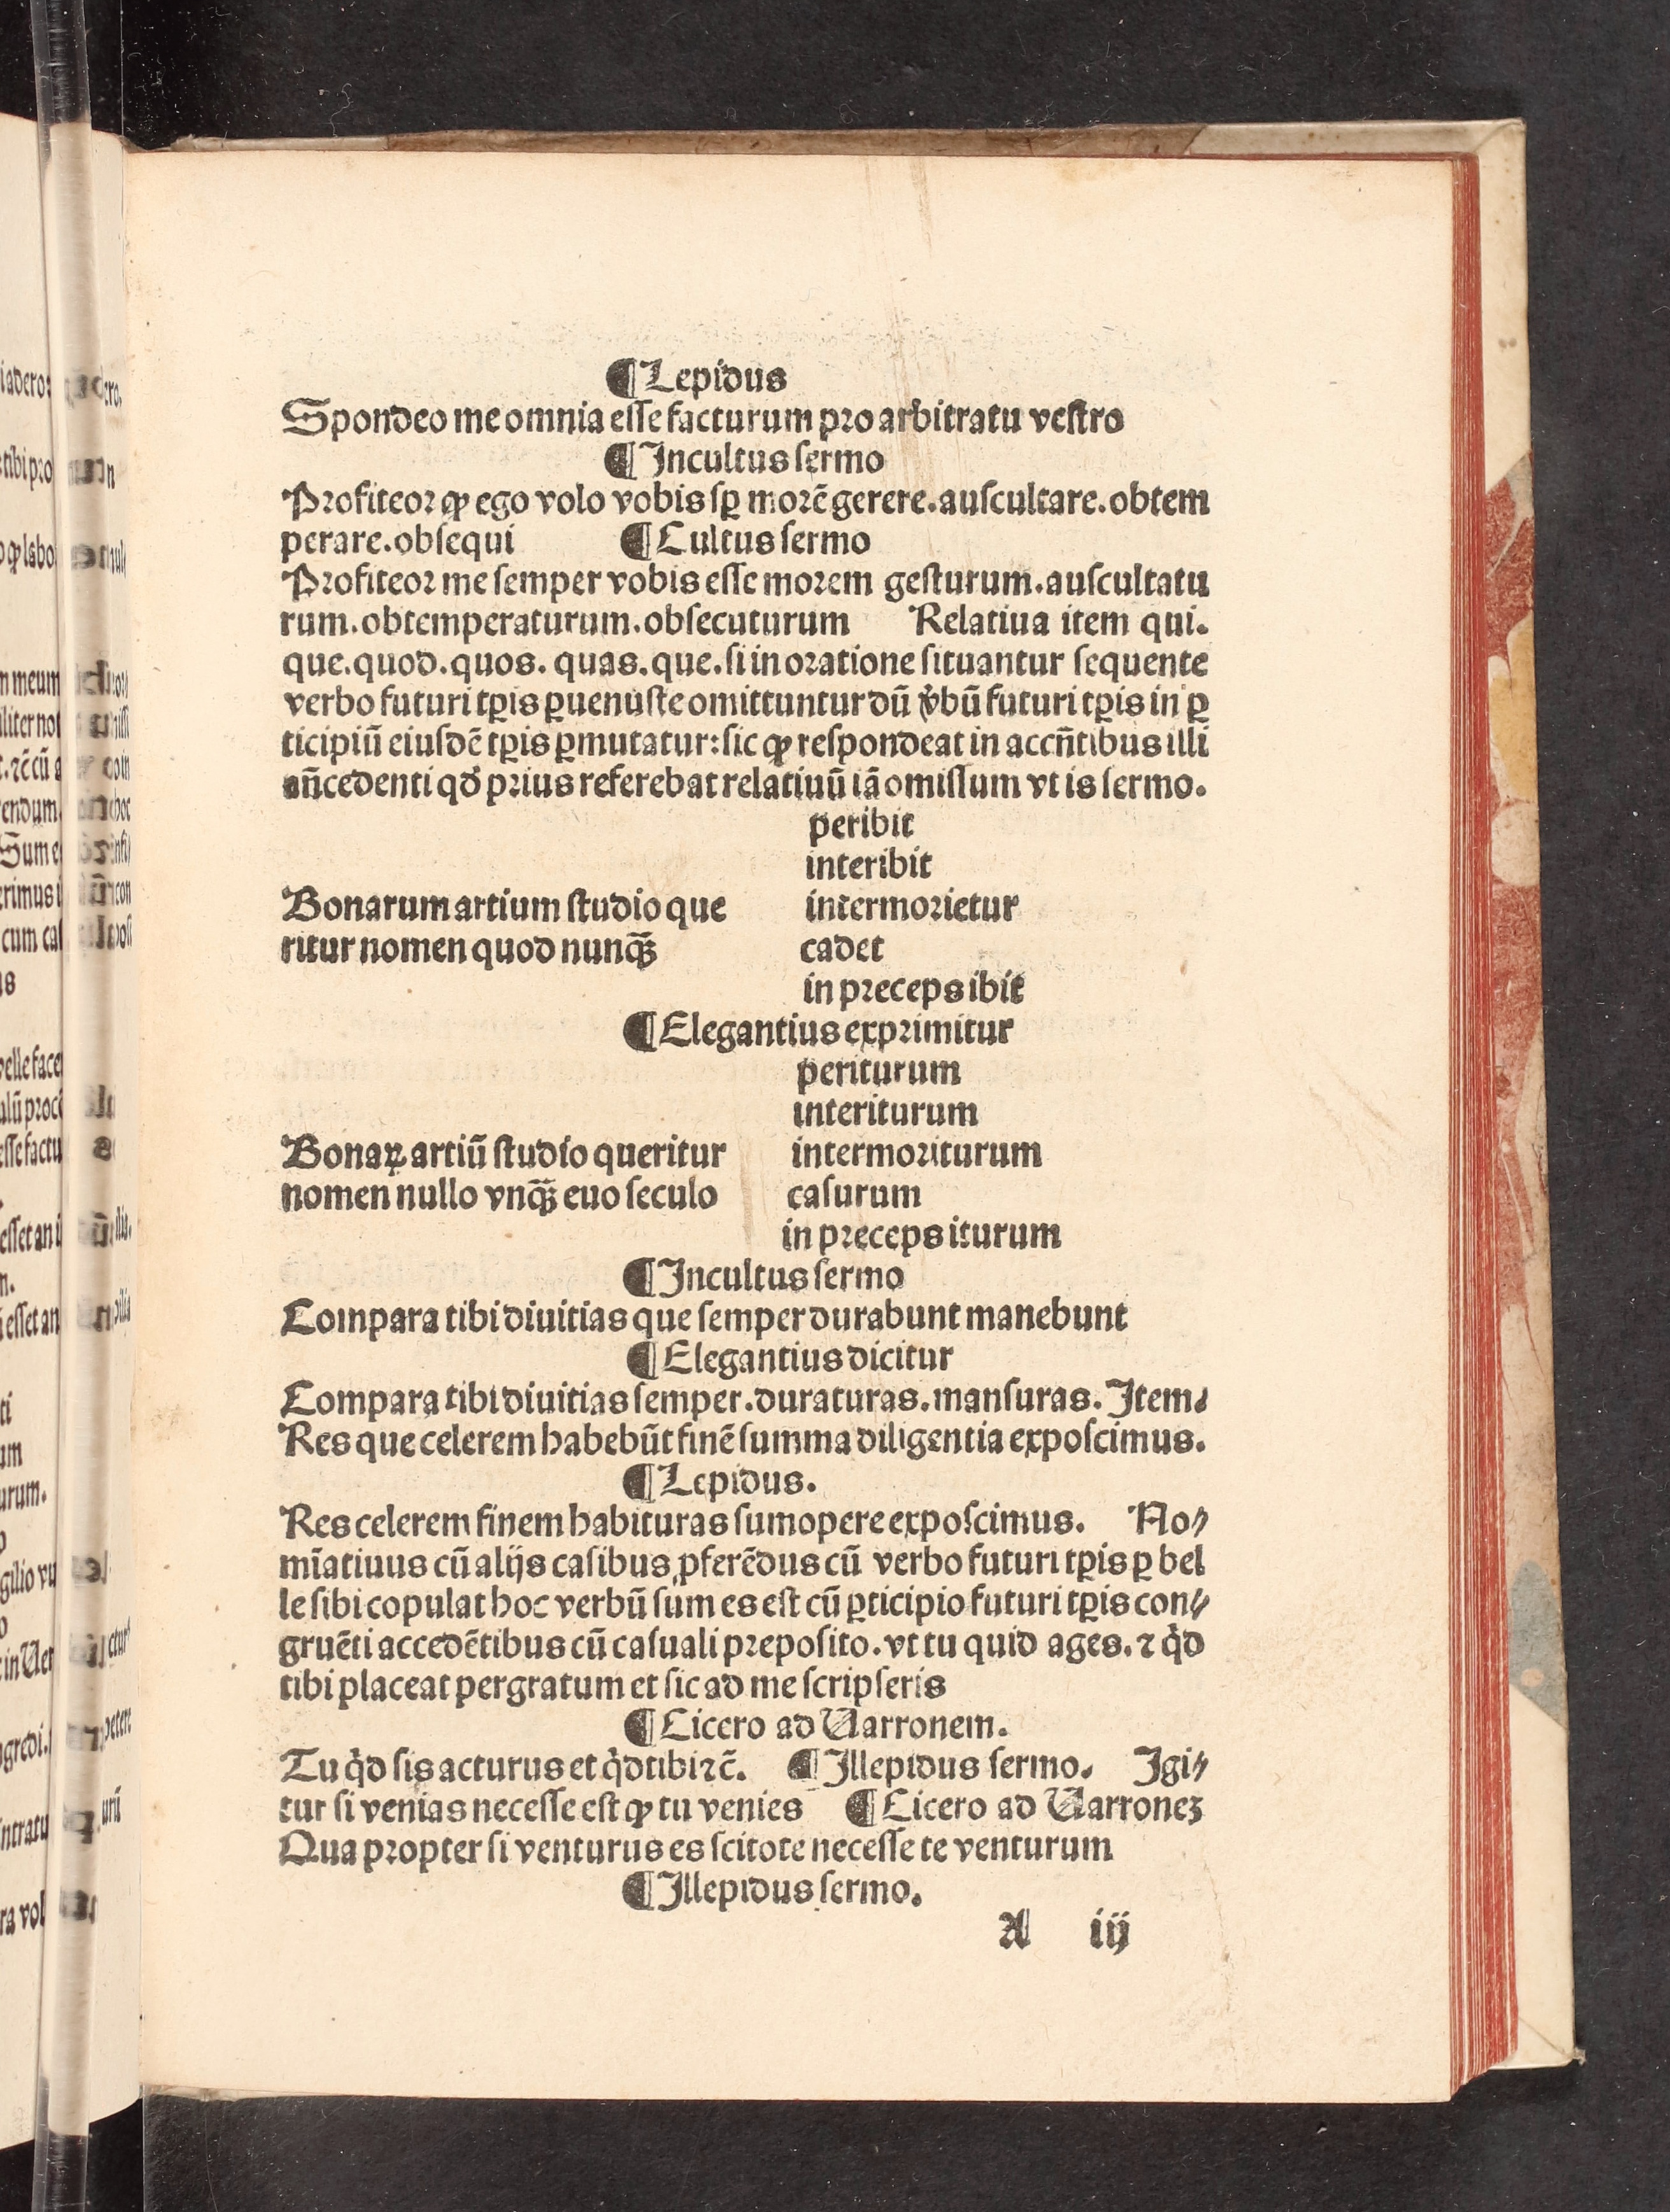 ¶Lepidus
Spondeo me omnia eſſe facturum pro arbitratu veſtro
¶Incultus ſermo
Profiteor ꝙ ego volo vobis ſꝑ morē gerere.auſcultare.obtem
perare.obſequi ¶Cultus ſermo
Profiteor me ſemper vobis eſſe morem geſturum.auſcultatu
rum.obtemperaturum.obſecuturum Relatiua item qui.
que.quod.quos. quas.que.ſi in oratione ſituantur ſequente
verbo futuri tꝑis ꝑuenuſte omittuntur dū v̄bū futuri tꝑis in ꝑ
ticipiū eiuſdē tꝑis ꝑmutatur:ſic ꝙ reſpondeat in accn̄tibus illi
an̄cedenti qd̓ prius referebat relatiuū iā omiſſum vt is ſermo.
peribit
interibit
Bonarum artium ſtudio que intermorietur
ritur nomen quod nunq̄ꝫ cadet
in preceps ibit
¶Elegantius exprimitur
periturum
interiturum
Bonaꝝ artiū ſtudio queritur intermoriturum
nomen nullo vnq̄ꝫ euo ſeculo caſurum
in preceps iturum
¶Incultus ſermo
Compara tibi diuitias que ſemper durabunt manebunt
¶Elegantius dicitur
Compara tibi diuitias ſemper.duraturas.manſuras. Item⸗
Res que celerem habebūt finē ſumma diligentia expoſcimus.
¶Lepidus.
Res celerem finem habituras ſumopere expoſcimus. No⸗
mīatiuus cū alijs caſibus ꝓferēdus cū verbo futuri tꝑis ꝑ bel
le ſibi copulat hoc verbū ſum es eſt cū ꝑticipio futuri tꝑis con⸗
gruēti accedētibus cū caſuali prepoſito.vt tu quid ages.⁊ qͥd
tibi placeat pergratum et ſic ad me ſcripſeris
¶Cicero ad Varronem.
Tu qͥd ſis acturus et qͥd tibi ⁊c̄. ¶Illepidus ſermo. Igi⸗
tur ſi venias neceſſe eſt ꝙ tu venies ¶Cicero ad Varroneꝫ
Qua propter ſi venturus es ſcitote neceſſe te venturum
¶Illepidus ſermo.
A iij